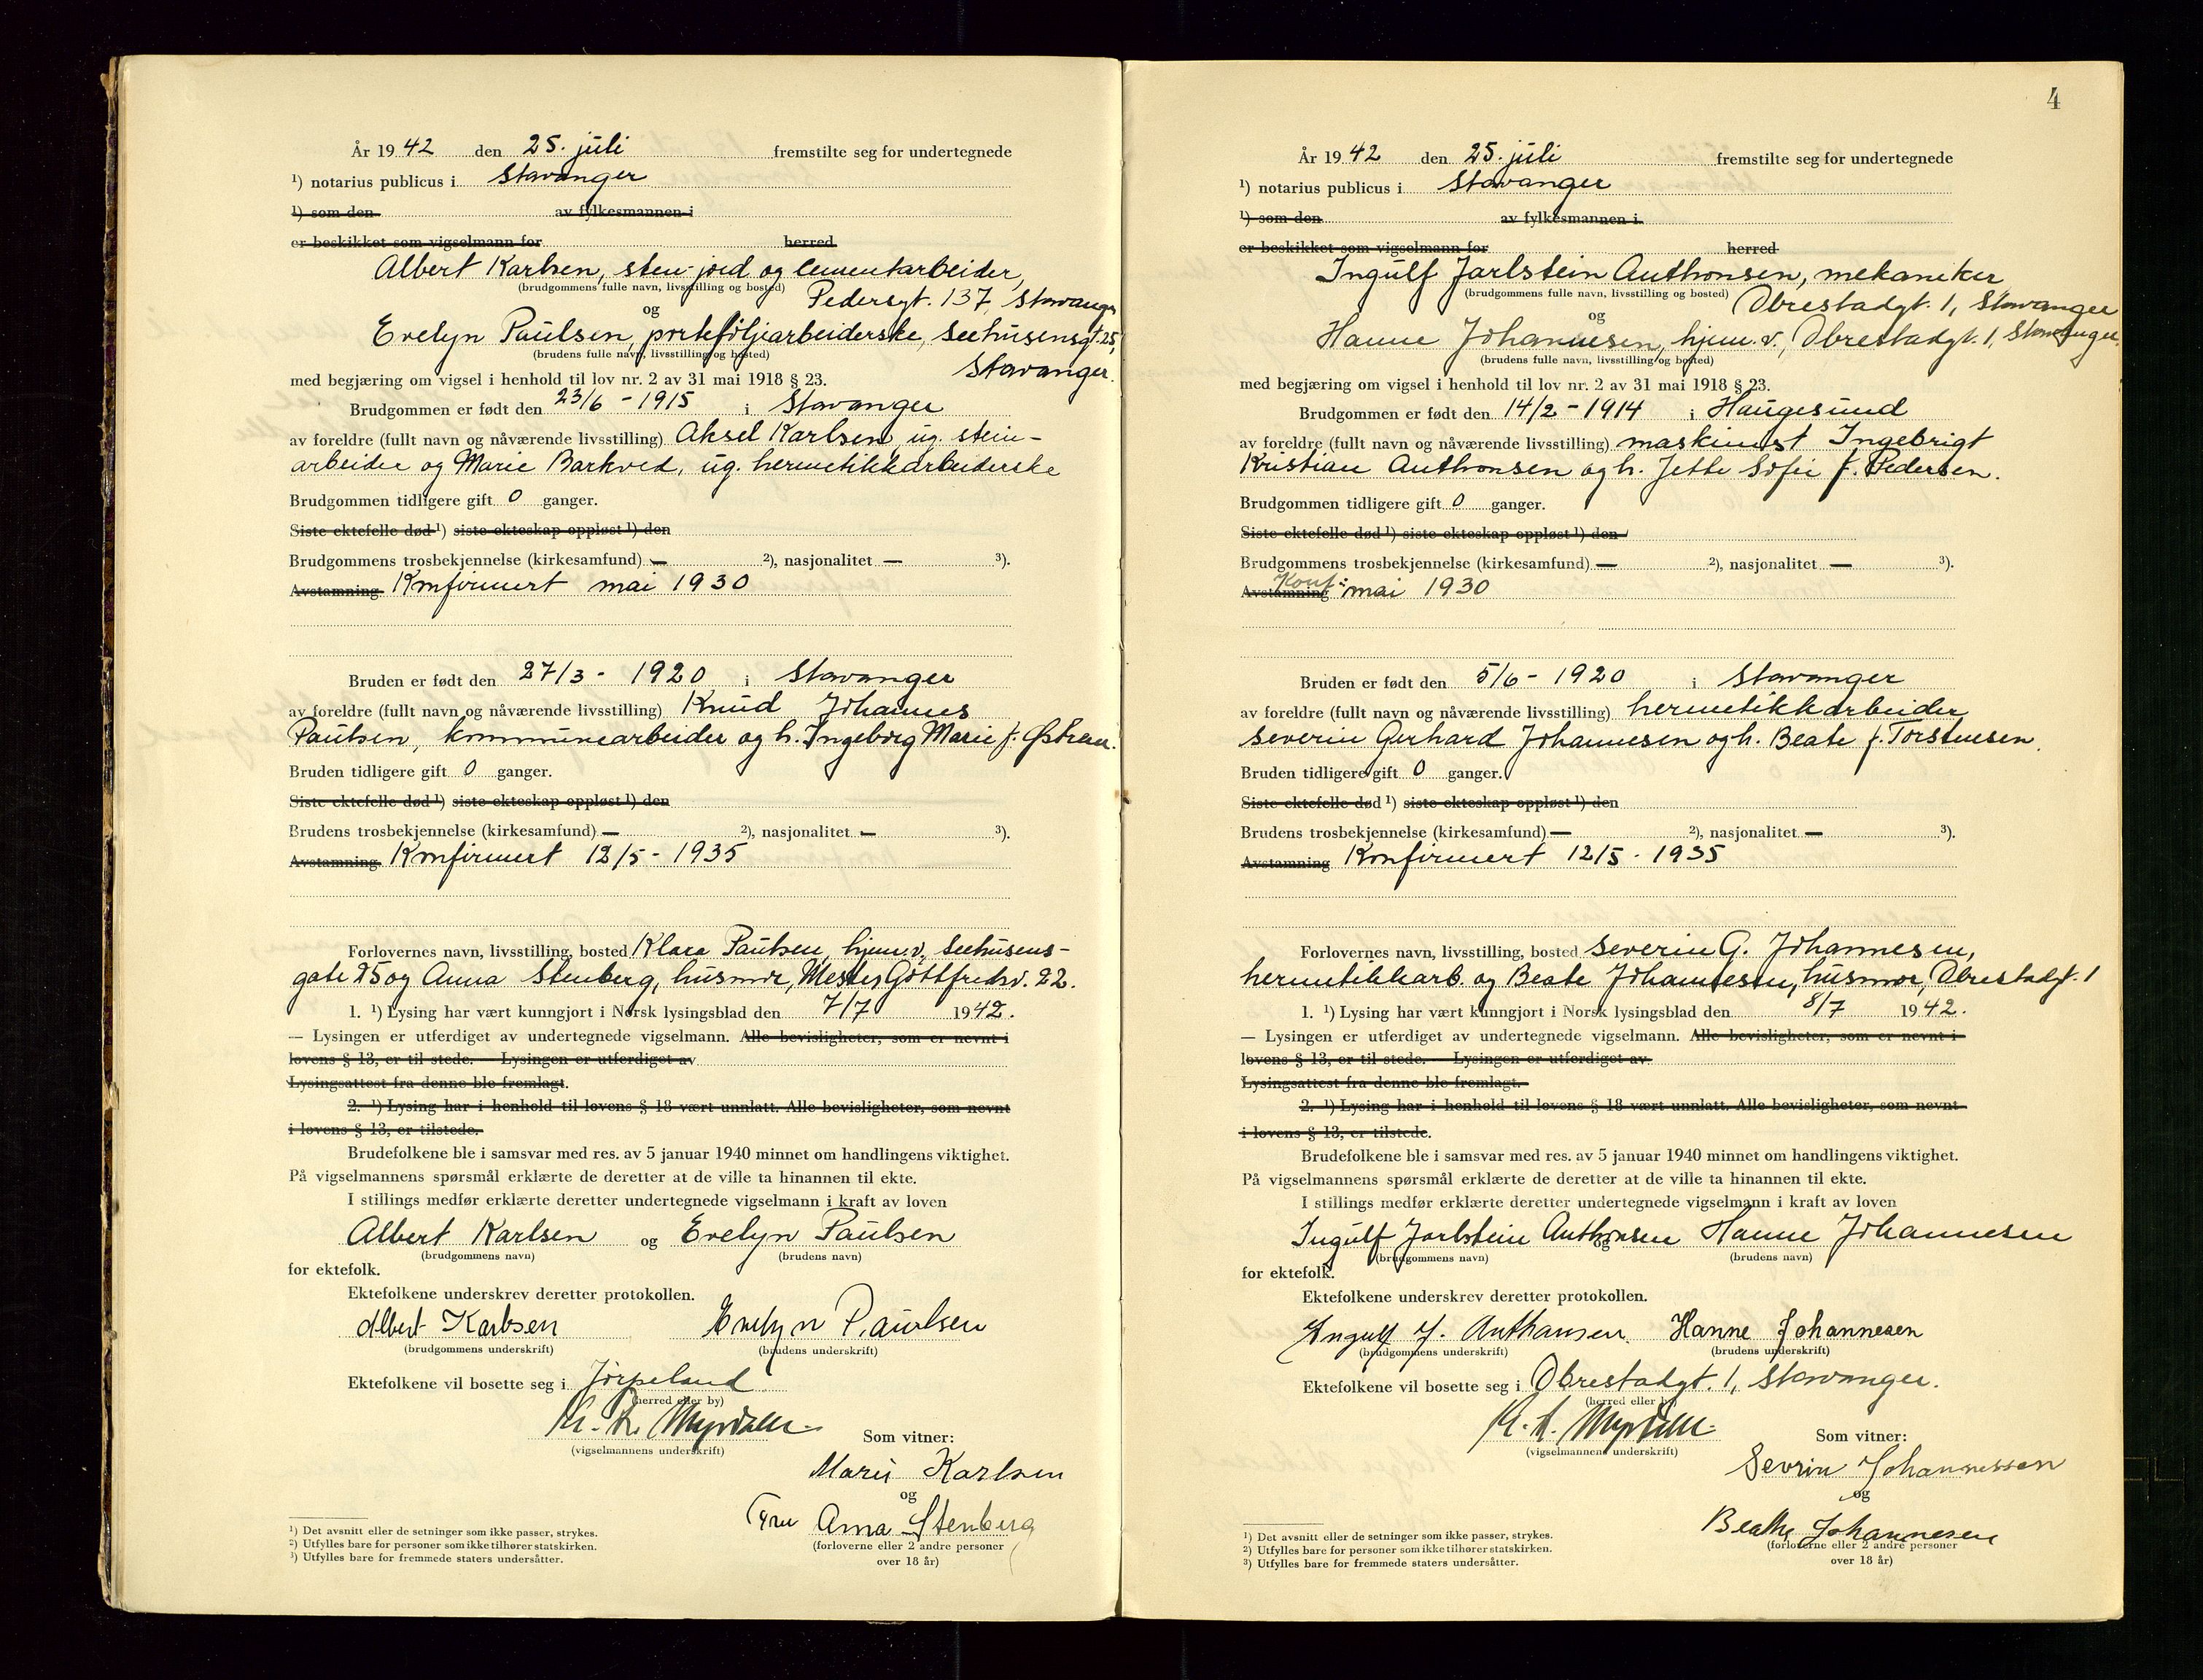 År 1942 den 25. juli fremstilte seg for undertegnede
¹) notarius publicus i Stavanger
¹) som den av fylkesmannen i
er beskikket som vigselmann for herred
Albert Karlsen, sten- jord og cementarbeider,
(brudgommens fulle navn, livsstilling og bosted) Pedersgt. 137, Stavanger
og
Evelyn Paulsen, porteføljearbeiderske, Seehusensgt. 25,
(brudens fulle navn, livsstilling og bosted)
Stavanger.
med begjæring om vigsel i henhold til lov nr. 2 av 31 mai 1918 § 23.
Brudgommen er født den 23/6 - 1915 i Stavanger
av foreldre (fullt navn og nåværende livsstilling) Aksel Karlsen, ug. stein-
arbeider og Marie Barkved, ug. hermetikkarbeiderske
Brudgommen tidligere gift 0 ganger.
Siste ektefelle død ¹) siste ekteskap oppløst ¹) den
Brudgommens trosbekjennelse (kirkesamfund) — ²), nasjonalitet — ³).
Avstamning Konfirmert mai 1930
Bruden er født den 27/3 - 1920 i Stavanger
av foreldre (fullt navn og nåværende livsstilling) Knud Johannes
Paulsen, kommunearbeider og h. Ingeborg Marie f. Østrem.
Bruden tidligere gift 0 ganger.
Siste ektefelle død ¹) siste ekteskap oppløst ¹) den
Brudens trosbekjennelse (kirkesamfund) — ²), nasjonalitet — ³).
Avstamning Konfirmert 12/5 - 1935
Forlovernes navn, livsstilling, bosted Klara Paulsen, hjem.v., Seehusens-
gate 25 og Anna Stenberg, husmor, Mester Gottfredsv. 22.
1. ¹) Lysing har vært kunngjort i Norsk lysingsblad den 7/7 1942.
— Lysingen er utferdiget av undertegnede vigselmann. Alle bevisligheter, som er nevnt i
lovens § 13, er til stede. — Lysingen er utferdiget av
Lysingsattest fra denne ble fremlagt.
2. ¹) Lysing har i henhold til lovens § 18 vært unnlatt. Alle bevisligheter, som nevnt
i lovens § 13, er tilstede.
Brudefolkene ble i samsvar med res. av 5 januar 1940 minnet om handlingens viktighet.
På vigselmannens spørsmål erklærte de deretter at de ville ta hinannen til ekte.
I stillings medfør erklærte deretter undertegnede vigselmann i kraft av loven
Albert Karlsen og Evelyn Paulsen
(brudgommens navn) (brudens navn)
for ektefolk.
Ektefolkene underskrev deretter protokollen.
Albert Karlsen Evelyn Paulsen
(brudgommens underskrift) (brudens underskrift)
Ektefolkene vil bosette seg i Jørpeland
(herred eller by)
(vigselmannens underskrift) Som vitner:
Marie Karlsen
og
Fru Anna Stenberg
(forloverne eller 2 andre personer
over 18 år)
¹) Det avsnitt eller de setninger som ikke passer, strykes.
²) Utfylles bare for personer som ikke tilhører statskirken.
³) Utfylles bare for fremmede staters undersåtter.
4
År 1942 den 25. juli fremstilte seg for undertegnede
¹) notarius publicus i Stavanger
¹) som den av fylkesmannen i
er beskikket som vigselmann for herred
Ingulf Jarlstein Anthonsen, mekaniker
(brudgommens fulle navn, livsstilling og bosted) Obrestadgt. 1, Stavanger
og
Hanne Johannesen, hjem. v., Obrestadgt. 1, Stavanger.
(brudens fulle navn, livsstilling og bosted)
med begjæring om vigsel i henhold til lov nr. 2 av 31 mai 1918 § 23.
Brudgommen er født den 14/2 - 1914 i Haugesund
av foreldre (fullt navn og nåværende livsstilling) maskinist Ingebrigt
Kristian Anthonsen og h. Jette Sofie f. Pedersen.
Brudgommen tidligere gift 0 ganger.
Siste ektefelle død ¹) siste ekteskap oppløst ¹) den
Brudgommens trosbekjennelse (kirkesamfund) — ²), nasjonalitet — ³).
Avstamning Konf: mai 1930
Bruden er født den 5/6 - 1920 i Stavanger
av foreldre (fullt navn og nåværende livsstilling) hermetikkarbeider
Severin Gerhard Johannesen og h. Beate f. Torstensen.
Bruden tidligere gift 0 ganger.
Siste ektefelle død ¹) siste ekteskap oppløst ¹) den
Brudens trosbekjennelse (kirkesamfund) — ²), nasjonalitet — ³).
Avstamning Konfirmert 12/5 - 1935
Forlovernes navn, livsstilling, bosted Severin G. Johannesen,
hermetikkarb. og Beate Johannesen, husmor, Obrestadgt. 1
1. ¹) Lysing har vært kunngjort i Norsk lysingsblad den 8/7 1942.
— Lysingen er utferdiget av undertegnede vigselmann. Alle bevisligheter, som er nevnt i
lovens § 13, er til stede. — Lysingen er utferdiget av
Lysingsattest fra denne ble fremlagt.
2. ¹) Lysing har i henhold til lovens § 18 vært unnlatt. Alle bevisligheter, som nevnt
i lovens § 13, er tilstede.
Brudefolkene ble i samsvar med res. av 5 januar 1940 minnet om handlingens viktighet.
På vigselmannens spørsmål erklærte de deretter at de ville ta hinannen til ekte.
I stillings medfør erklærte deretter undertegnede vigselmann i kraft av loven
Ingulf Jarlstein Anthonsen og Hanne Johannesen
(brudgommens navn) (brudens navn)
for ektefolk.
Ektefolkene underskrev deretter protokollen.
Ingulf J. Anthonsen. Hanne Johannesen
(brudgommens underskrift) (brudens underskrift)
Ektefolkene vil bosette seg i Obrestadgt. 1, Stavanger.
(herred eller by)
(vigselmannens underskrift) Som vitner:
Sevrin Johannessen
og
Beathe Johannesen
(forloverne eller 2 andre personer
over 18 år)
¹) Det avsnitt eller de setninger som ikke passer, strykes.
²) Utfylles bare for personer som ikke tilhører statskirken.
³) Utfylles bare for fremmede staters undersåtter.